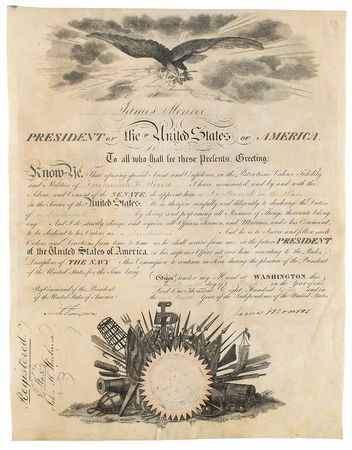 James Monroe
PRESIDENT OF the United States OF AMERICA.
To all who shall see these Presents, Greeting:
Know Ye, That reposing special Trust and Confidence in the Patriotism, Valour, Fidelity
and Abilities of I have nominated, and by and with the
Advice and Consent of the SENATE, do appoint him a Lieutenant in the Navy
in the Service of the United States. He is therefore carefully and diligently to discharge the Duties
of by doing and performing all Manner of Things thereunto belong
ing. And I do strictly charge, and require all Officers, Seamen and others, under his Command
to be obedient to his Orders as And he is to observe and follow such
Orders and Directions from time to time as he shall receive from me, or the future PRESIDENT
of the United States of America, or his superior Officer set over him, according to the Rules and
Discipline of THE NAVY. This Commission to continue in force during the pleasure of the President
of the United States for the time being.
Given under my Hand at WASHINGTON this
in the Year of our
Lord One Thousand Eight Hundred and in
the Year of the Independence of the United States.
By Command of the President
of the United States of America.
James Monroe
Registered